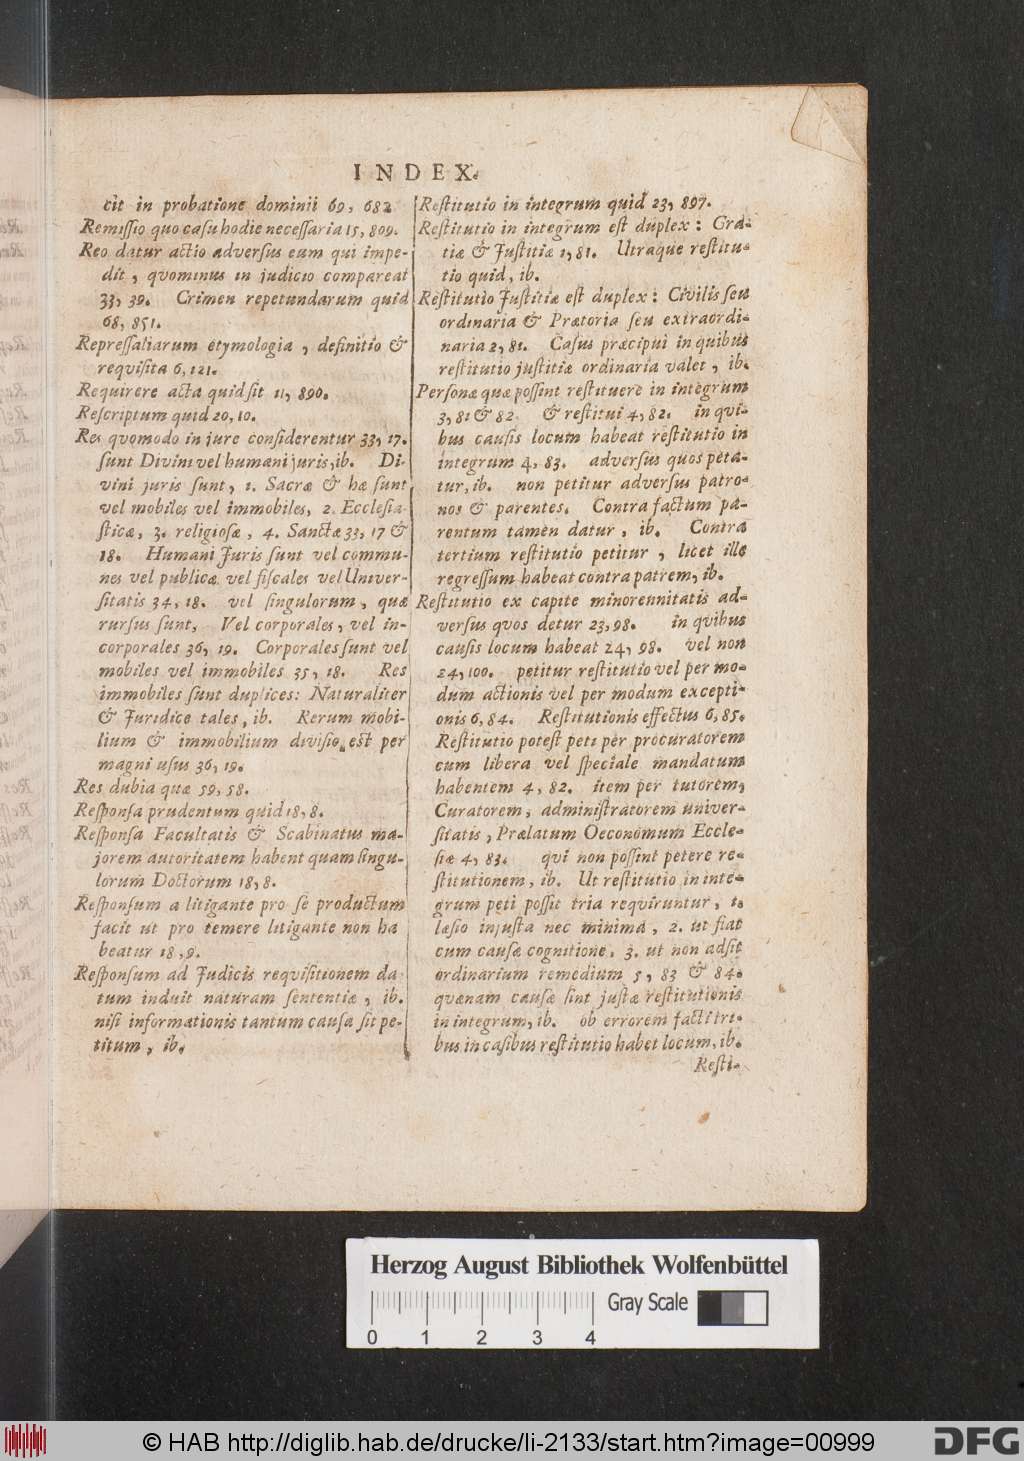 INDEX.
cit in probatione dominii 69, 682
Remissio quo casu hodie necessaria 15, 809.
Reo datur actio adversus eum qui impe-
dit, qvominus in judicio compareat
33, 39. Crimen repetundarum quid
68, 851.
Repressaliarum etymologia, definitio &
reqvisita 6, 121.
Requirere acta quid sit 11, 890.
Rescriptum quid 20, 10.
Res qvomodo in jure considerentur 33, 17.
sunt Divini vel humani juris, ib. Di-
vini juris sunt, 1. Sacræ & hæ sunt
vel mobiles vel immobiles, 2. Ecclesia-
sticæ, 3. religiosæ, 4. Sanctæ 33, 17 &
18. Humani Juris sunt vel commu-
nes vel publicæ vel fiscales vel Univer-
sitatis 34, 18. vel singulorum, quæ
rursus sunt, Vel corporales, vel in-
corporales 36, 19. Corporales sunt vel
mobiles vel immobiles 35, 18. Res
immobiles sunt duplices: Naturaliter
& Juridice tales, ib. Rerum mobi-
lium & immobilium divisio est per
magni usus 36, 19.
Res dubia quæ 59, 58.
Responsa prudentum quid 18, 8.
Responsa Facultatis & Scabinatus ma-
jorem autoritatem habent quam singu-
lorum Doctorum 18, 8.
Responsum a litigante pro se productum
facit ut pro temere litigante non ha
beatur 18, 9.
Responsum ad Judicis reqvisitionem da
tum induit naturam sententiæ, ib.
nisi informationis tantum causa sit pe-
titum, ib.
Restitutio in integrum quid 23, 897.
Restitutio in integrum est duplex: Gra-
tiæ & Justitiæ 1, 81. Utraque restitu-
tio quid, ib.
Restitutio Justitiæ est duplex: Civilis seu
ordinaria & Prætoria seu extraordi-
naria 2, 81. Casus præcipui in quibus
restitutio justitiæ ordinaria valet, ib.
Personæ quæ possint restituere in integrum
3, 81 & 82 & restitui 4, 82. in qvi-
bus causis locum habeat restitutio in
integrum 4, 83. adversus quos peta-
tur, ib. non petitur adversus patro-
nos & parentes. Contra factum pa-
rentum tamen datur, ib. Contra
tertium restitutio petitur, licet ille
regressum habeat contra patrem, ib.
Restitutio ex capite minorennitatis ad-
versus qvos detur 23, 98. in qvibus
causis locum habeat 24, 98. vel non
24, 100. petitur restitutio vel per mo-
dum actionis vel per modum excepti-
onis 6, 84. Restitutionis effectus 6, 85.
Restitutio potest peti per procuratorem
cum libera vel speciale mandatum
habentem 4, 82. item per tutorem,
Curatorem, administratorem univer-
sitatis, Prælatum Oeconomum Eccle-
siæ 4, 83. qvi non possint petere re-
stitutionem, ib. Ut restitutio in inte-
grum peti possit tria reqviruntur, 1.
læsio injusta nec minima, 2. ut fiat
cum causæ cognitione, 3. ut non adsit
ordinarium remedium 5, 83 & 84.
quænam causæ sint justæ restitutionis
in integrum, ib. ob errorem facti tri-
bus in casibus restitutio habet locum, ib.
Resti-
Herzog August Bibliothek Wolfenbüttel
Gray Scale
0 1 2 3 4
© HAB http://diglib.hab.de/drucke/li-2133/start.htm?image=00999
DFG